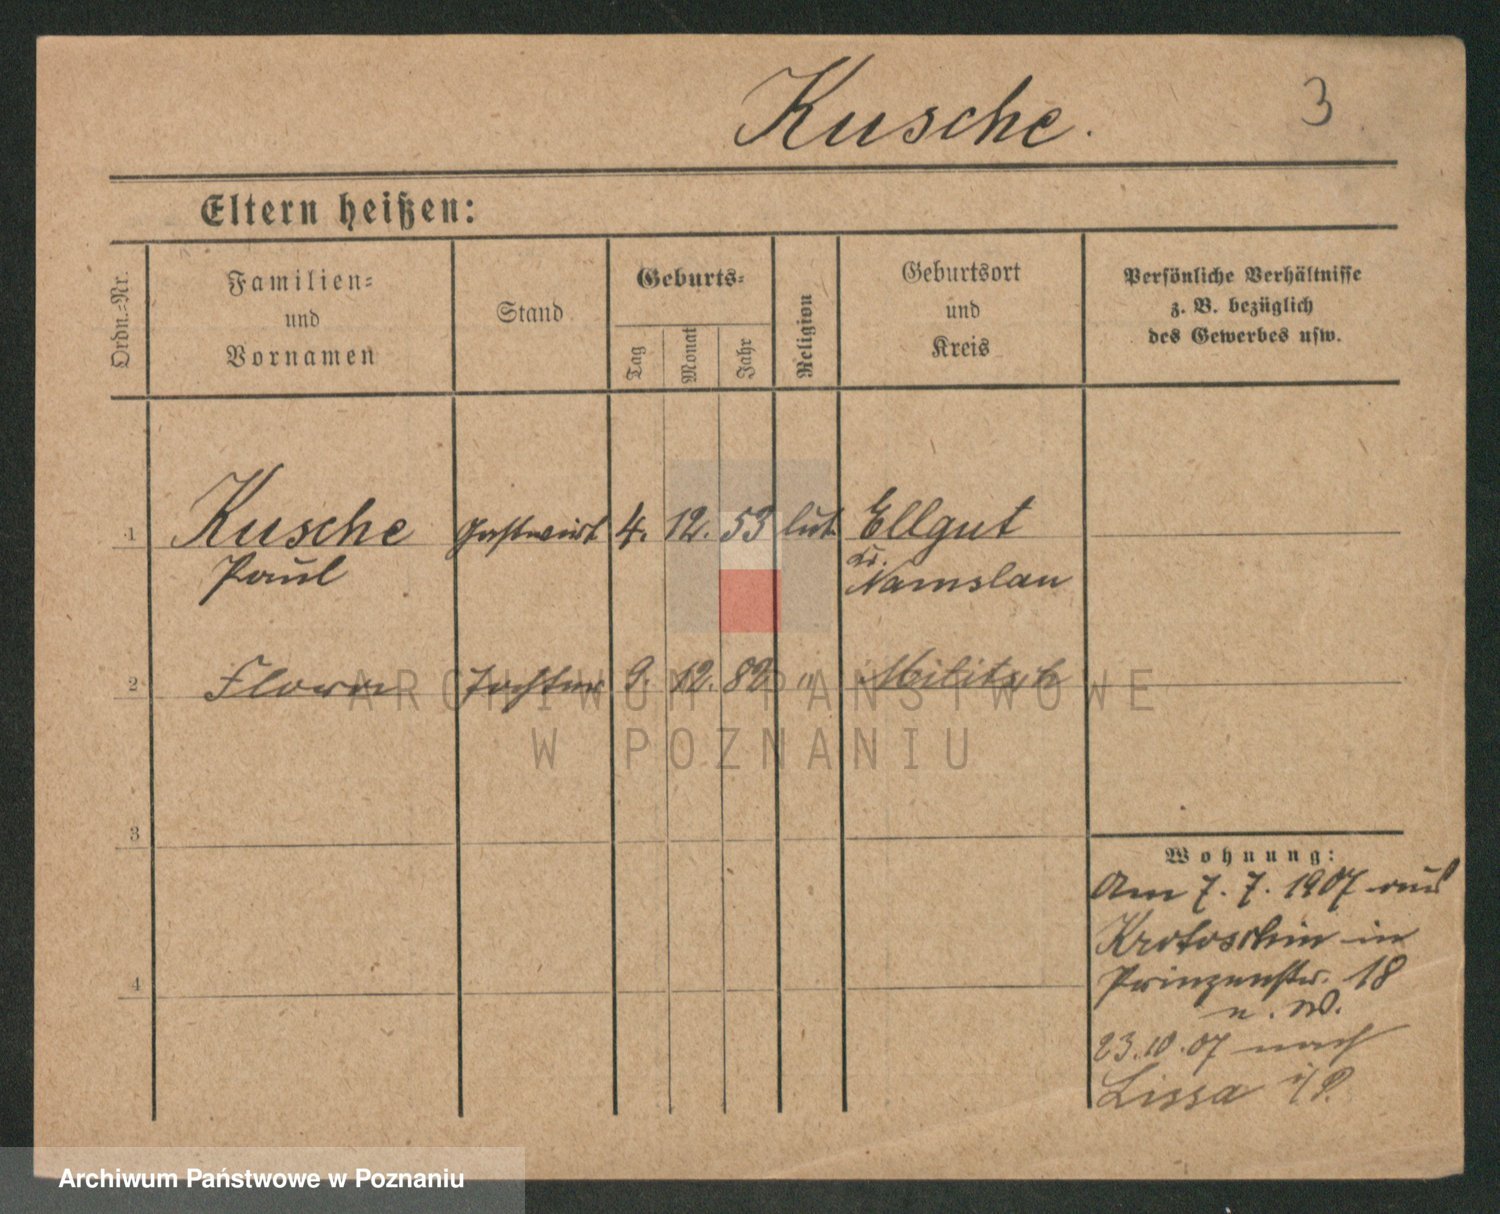 Kusche.
3
Eltern heißen:
Ordn.-Nr.
Familien-
und
Vornamen
Stand
Geburts-
Tag
Monat
Jahr
Religion
Geburtsort
und
Kreis
Persönliche Verhältnisse
z. B. bezüglich
des Gewerbes usw.
1 Kusche Gastwirt 4. 12. 53 lut. Ellgut
Paul Kr. Namslau
2 Flora Tochter 9. 12. 82 " Militsch
3
4
Wohnung:
Am 7. 7. 1907 aus
Krotoschin in
Prinzenstr. 18
23.10.07 nach
Lissa i/P.
ARCHIWUM PAŃSTWOWE
W POZNANIU
Archiwum Państwowe w Poznaniu